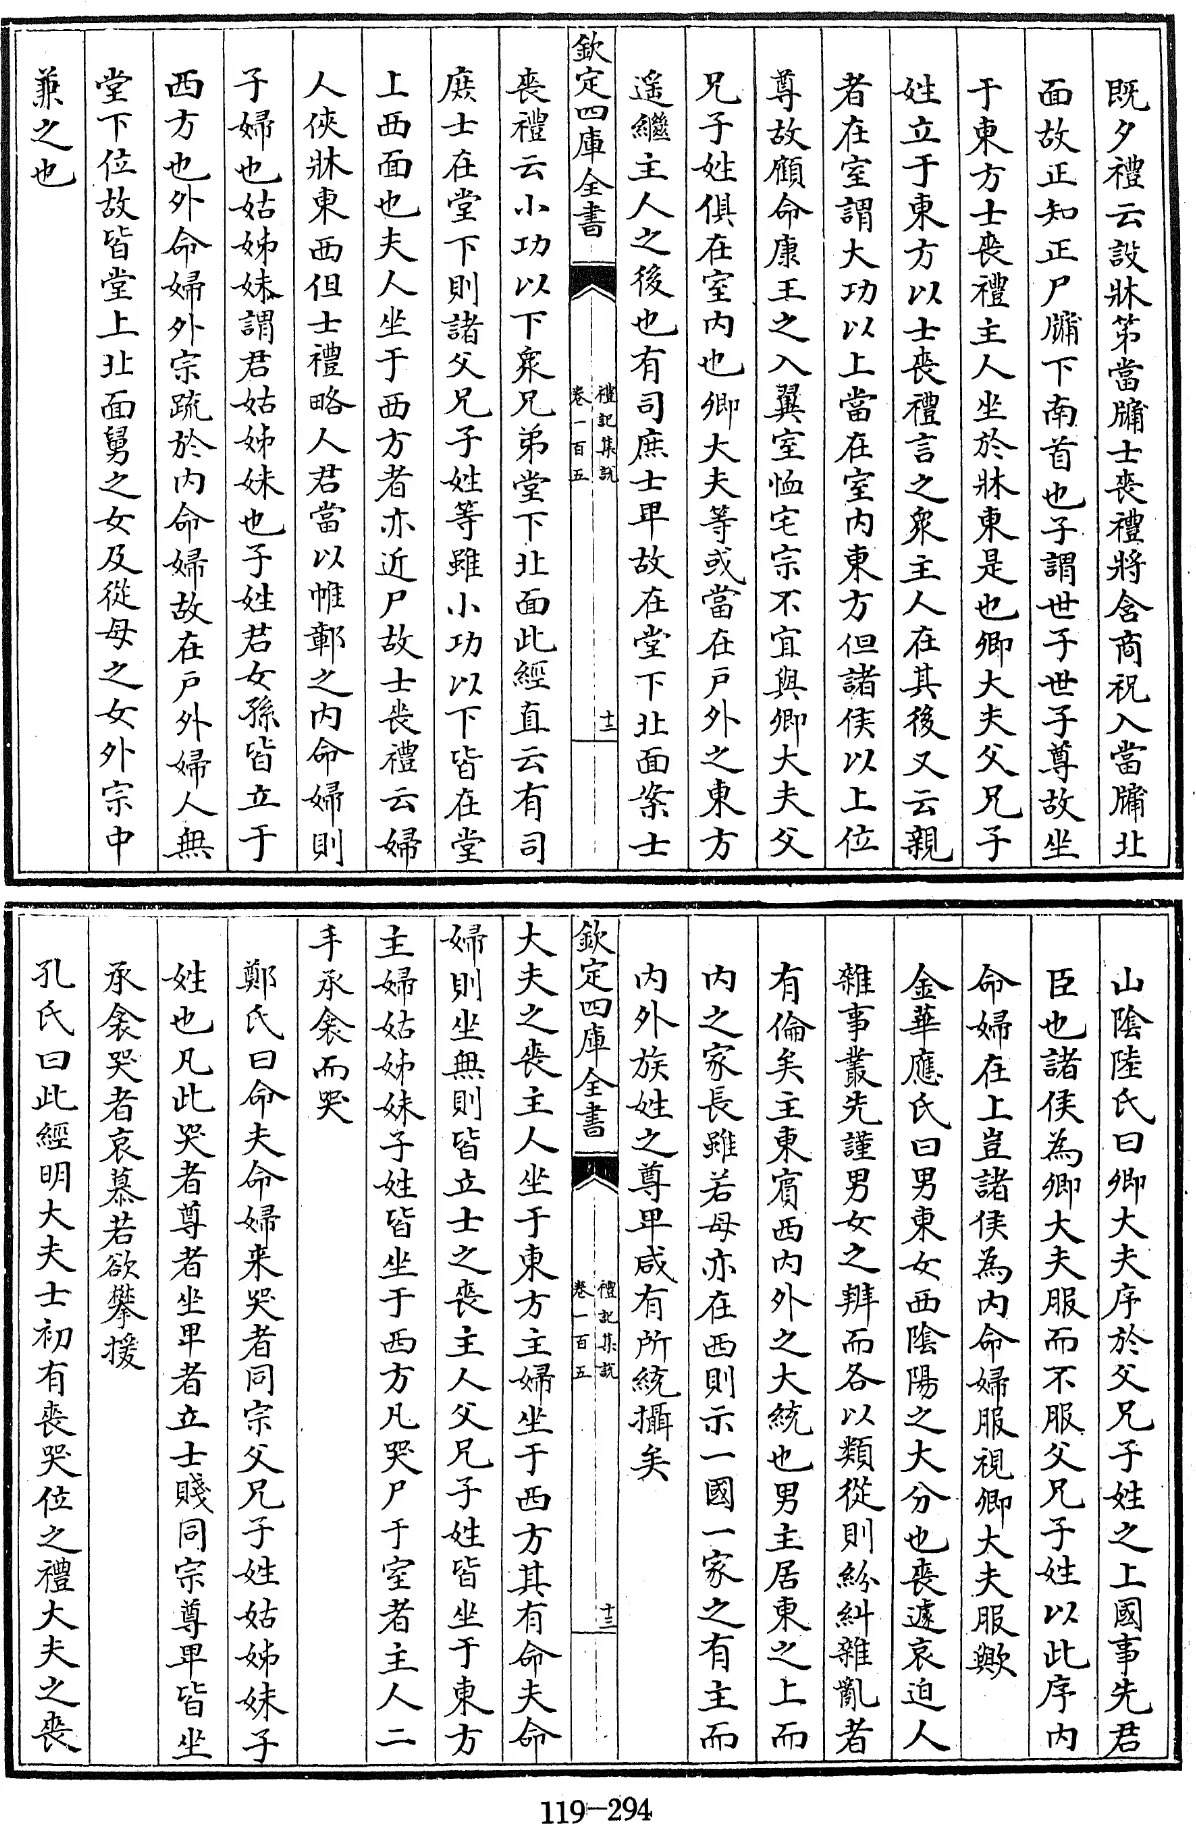 既夕禮云設牀第當牖士喪禮將含商祝入當牖北
面故正知正尸牖下南首也子謂世子世子尊故坐
于東方士喪禮主人坐於牀東是也卿大夫父兄子
姓立于東方以士喪禮言之衆主人在其後又云親
者在室謂大功以上當在室内東方但諸侯以上位
尊故顧命康王之入翼室恤宅宗不宜與卿大夫父
兄子姓俱在室内也卿大夫等或當在戸外之東方
遥繼主人之後也有司庶士卑故在堂下北面案士
欽定四庫全書
禮記集說
卷一百五
十二
喪禮云小功以下衆兄弟堂下北面此經直云有司
庶士在堂下則諸父兄子姓等雖小功以下皆在堂
上西面也夫人坐于西方者亦近尸故士喪禮云婦
人俠牀東西但士禮略人君當以帷鄣之内命婦則
子婦也姑姊妹謂君姑姊妹也子姓君女孫皆立于
西方也外命婦外宗疏於内命婦故在戸外婦人無
堂下位故皆堂上北面舅之女及從母之女外宗中
兼之也
山陰陸氏曰卿大夫序於父兄子姓之上國事先君
臣也諸侯為卿大夫服而不服父兄子姓以此序内
命婦在上豈諸侯為内命婦服視卿大夫服歟
金華應氏曰男東女西陰陽之大分也喪遽哀迫人
雜事叢先謹男女之辨而各以類從則紛糾雜亂者
有倫矣主東賓西内外之大統也男主居東之上而
内之家長雖若母亦在西則示一國一家之有主而
内外族姓之尊卑咸有所統攝矣
欽定四庫全書
禮記集說
卷一百五
十三
大夫之喪主人坐于東方主婦坐于西方其有命夫命
婦則坐無則皆立士之喪主人父兄子姓皆坐于東方
主婦姑姊妹子姓皆坐于西方凡哭尸于室者主人二
手承衾而哭
鄭氏曰命夫命婦来哭者同宗父兄子姓姑姊妹子
姓也凡此哭者尊者坐卑者立士賤同宗尊卑皆坐
承衾哭者哀慕若欲攀援
孔氏曰此經明大夫士初有喪哭位之禮大夫之喪
119-294